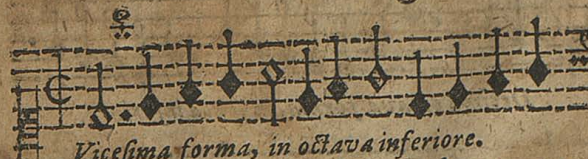 Vicesima forma, in octava inferiore.